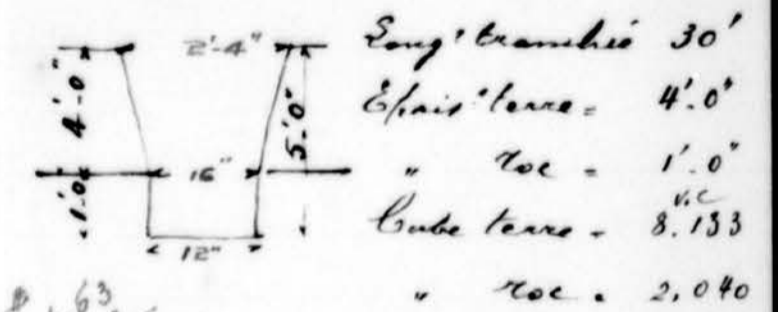 2'-4"
4'-0"
5'.0"
16"
1'.0"
12"
Long' tranchée 30'
Épais' terre = 4'.0"
" roc = 1'.0"
v.c
Cube terre = 8.133
" roc = 2,040
63